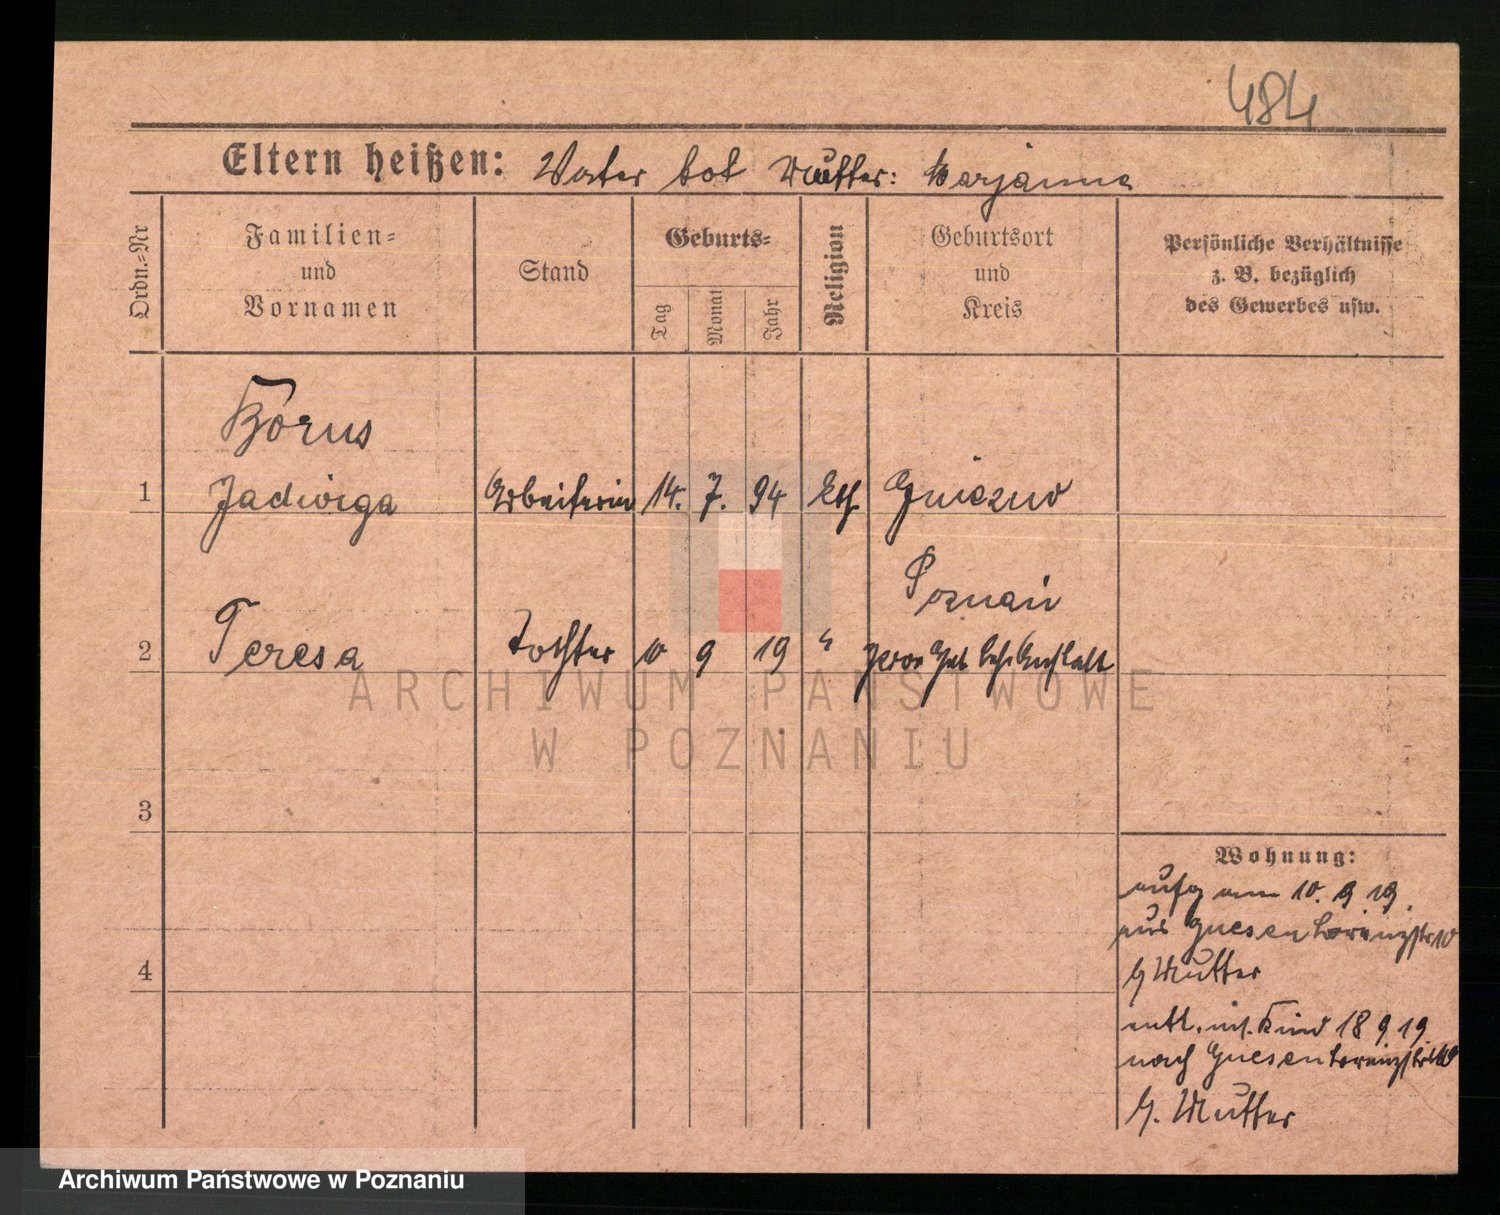 484
Eltern heißen: Vater tot Mutter: Marjanna
Ordn.-Nr
Familien-
und
Vornamen
Stand
Geburts-
Tag
Monat
Jahr
Religion
Geburtsort
und
Kreis
Persönliche Verhältnisse
z. B. bezüglich
des Gewerbes usw.
Borus
1 Jadwiga Arbeiterin 14. 7. 94 kth Gniezno
Poznań
2 Teresa Tochter 10 9 19 " Prov Heb Lehr Anstalt
3
4
Wohnung:
aufg am 10. 9 19.
aus Gnesen Lorenzstr 10
b/ Mutter
entl. mit Kind 18 9 19
nach Gnesen Lorenzstr 10
b. Mutter
ARCHIWUM PAŃSTWOWE
W POZNANIU
Archiwum Państwowe w Poznaniu